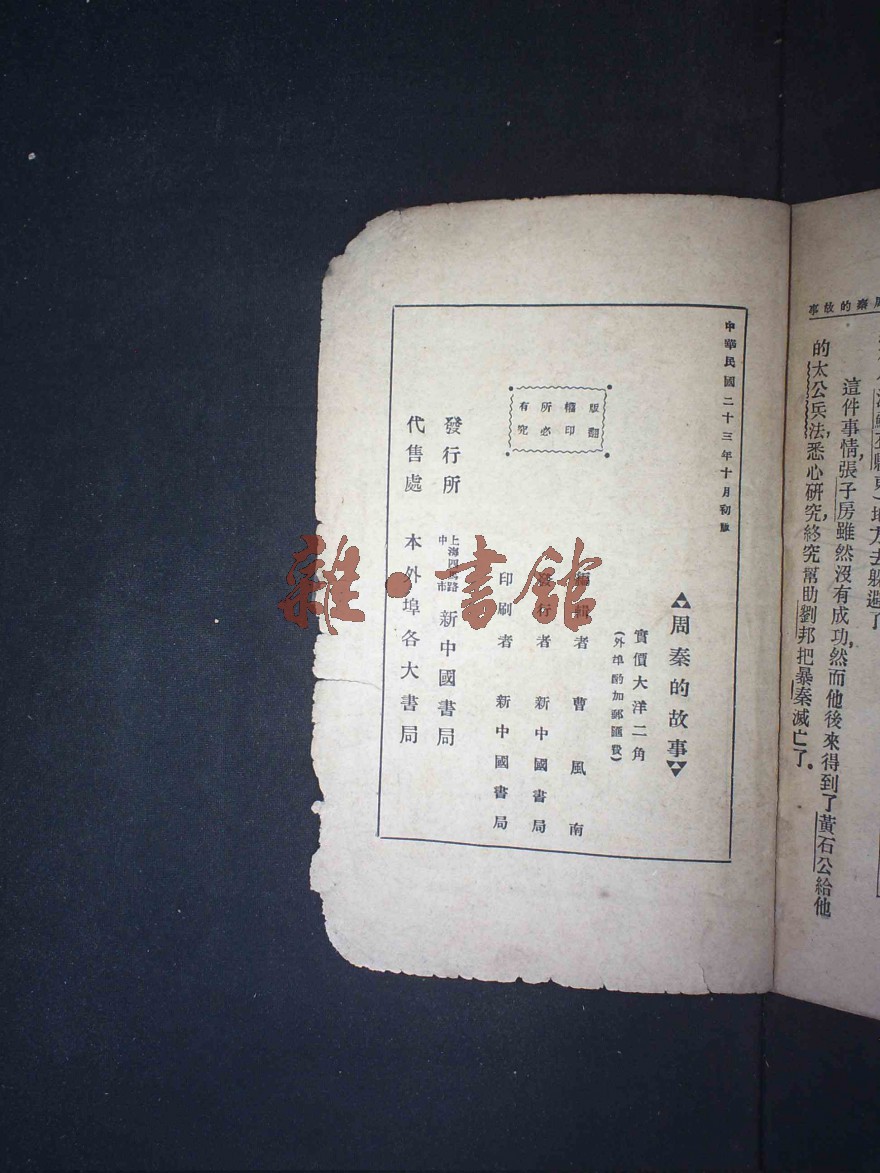 周秦的故事
這件事情，張子房雖然沒有成功，然而他後來得到了黃石公給他
的太公兵法，悉心研究，終究幫助劉邦把暴秦滅亡了。
中華民國二十三年十月初版
▲▼周秦的故事▲▼
實價大洋二角
（外埠酌加郵匯費）
版權所有
翻印必究
編輯者 曹風南
發行者 新中國書局
印刷者 新中國書局
發行所 上海四馬路中市 新中國書局
代售處 本外埠各大書局
雜·書館